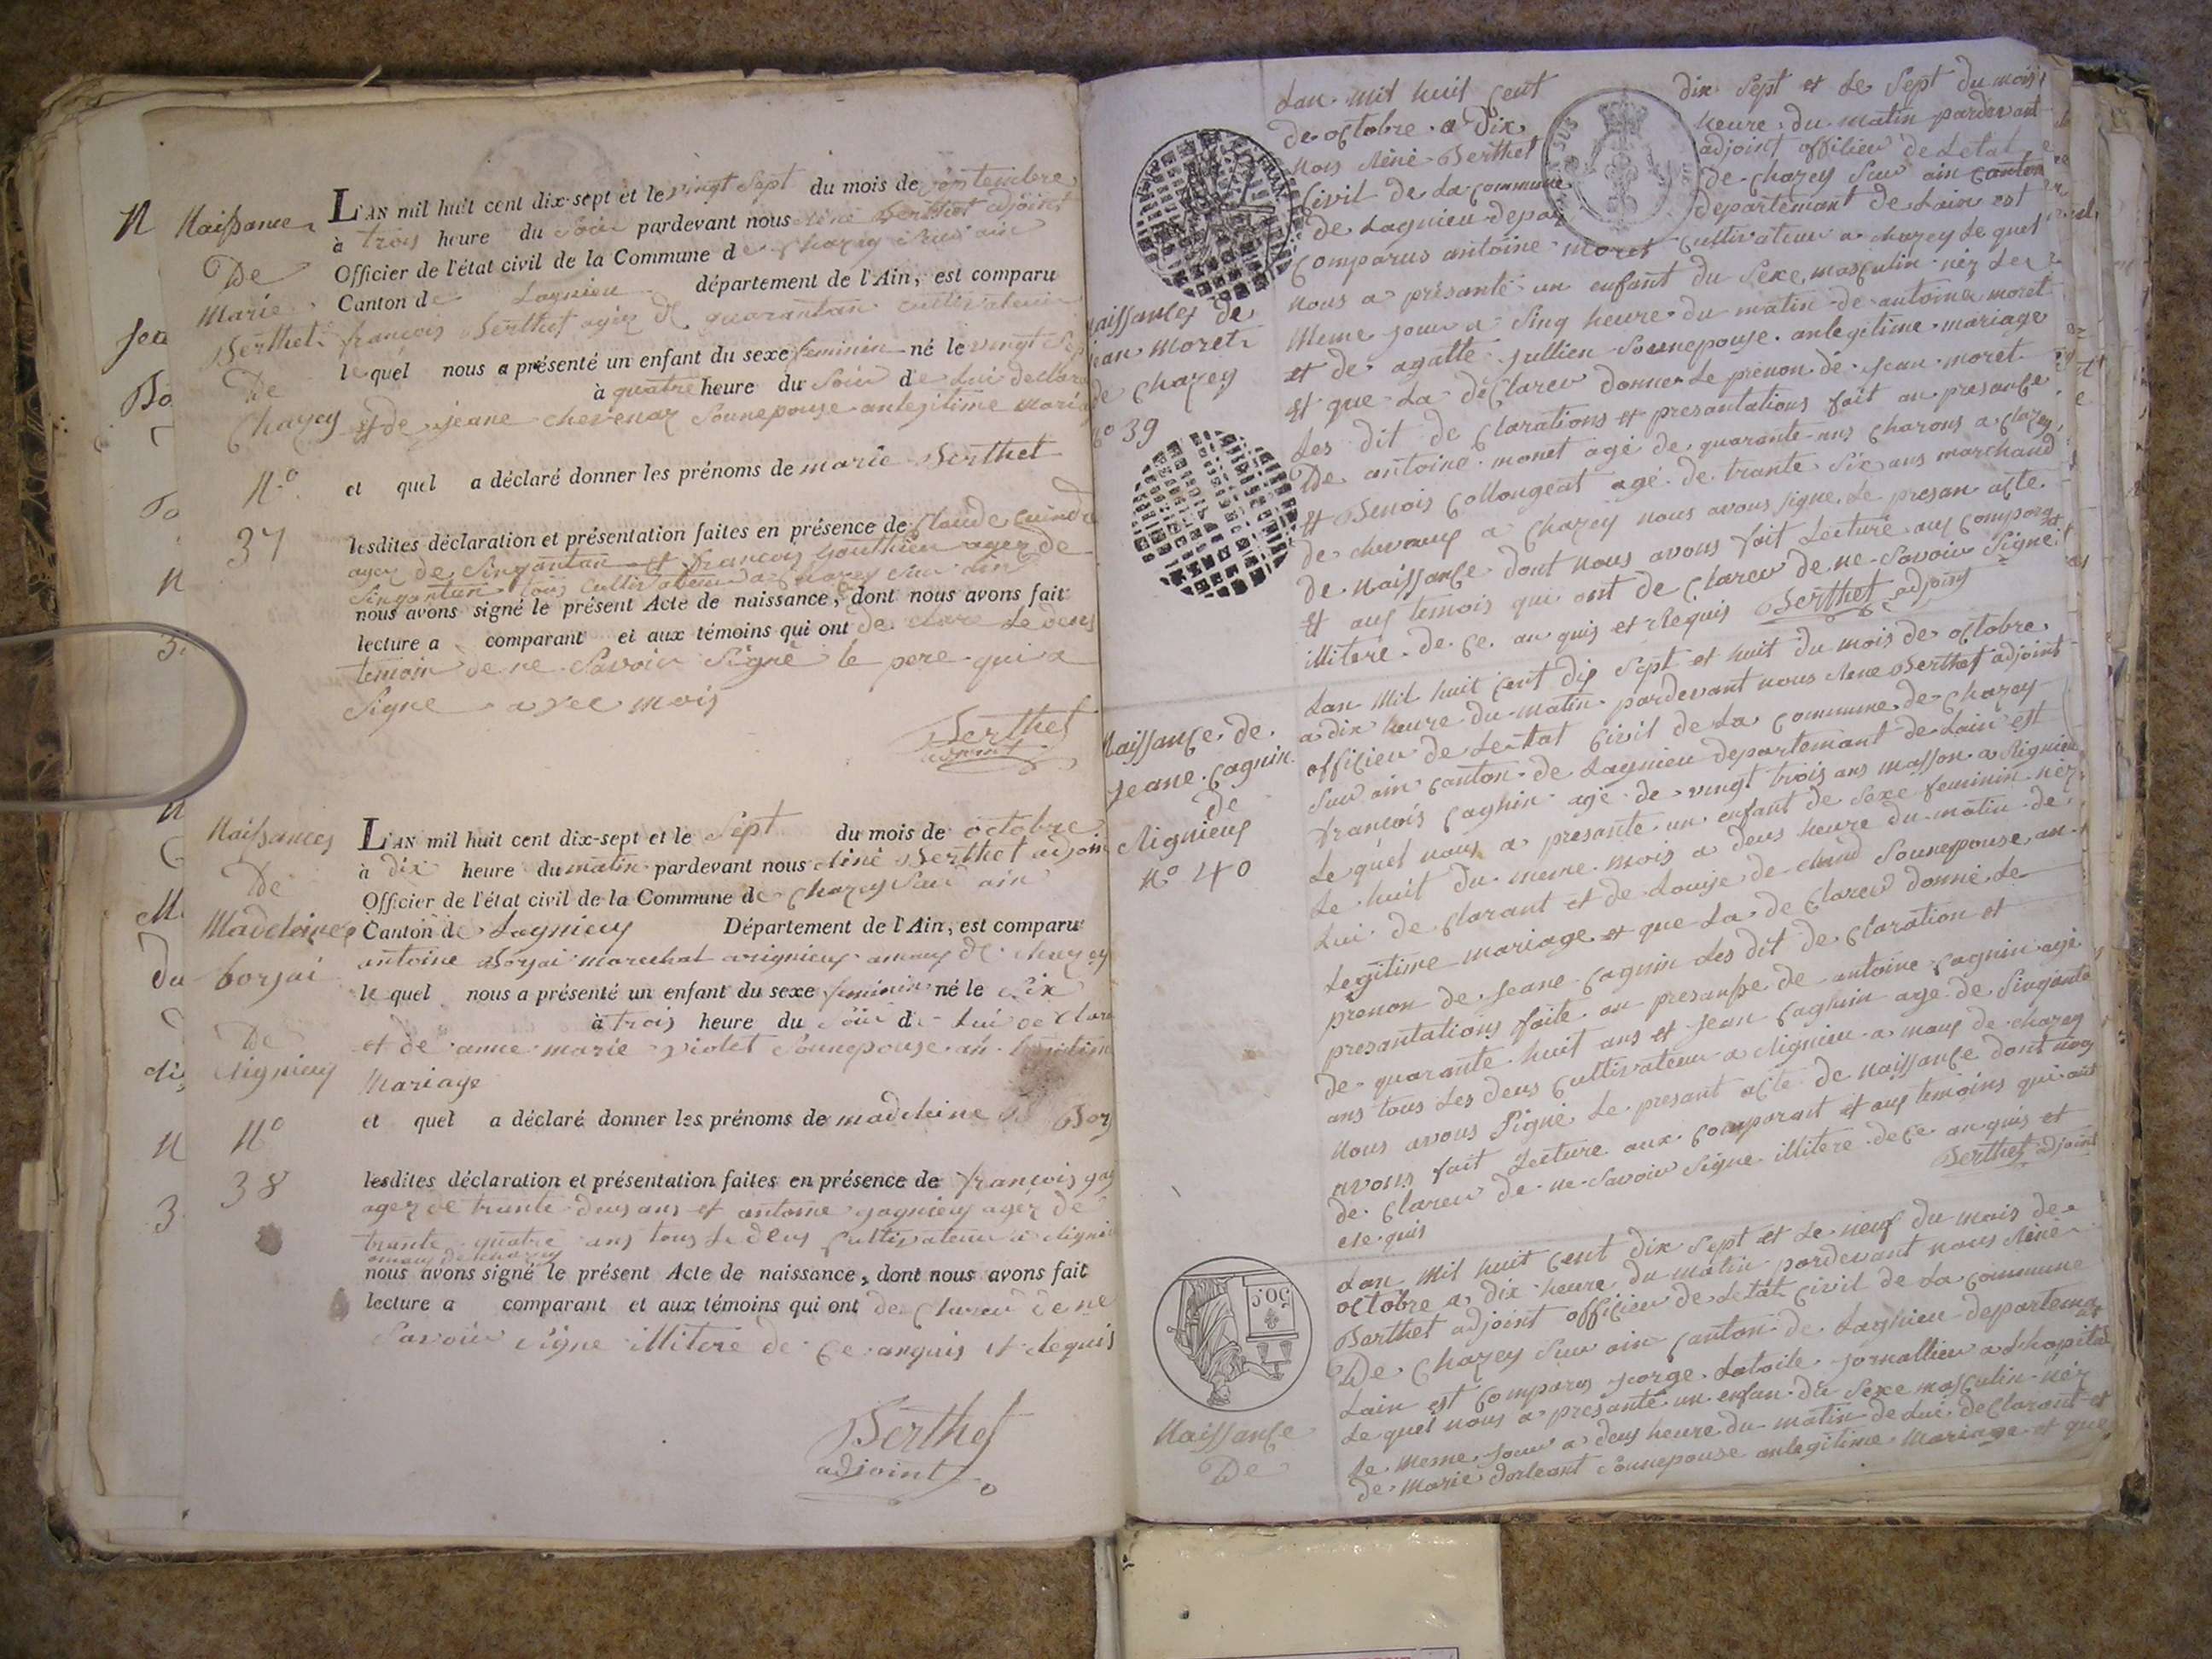 Naissance
De
Marie
Berthet
De
Chazey
N.º
37
L'AN mil huit cent dix-sept et le vingt sept du mois de septembre
à trois heure du soir pardevant nous Réné Berthet adjoint
Officier de l'état civil de la Commune de Chazey sur ain
Canton de Lagnieu département de l'Ain, est comparu
françois Berthet agez de quarantan cultivateur
lequel nous a présenté un enfant du sexe feminin né le vingt sep
à quatre heure du soir de lui declara
et de jeane chevenaz sounepouse anlegitime maria
et quel a déclaré donner les prénoms de marie Berthet
lesdites déclaration et présentation faites en présence de Claude
agez de sinqantan et francois gauthier agez de
sinqantan tous cultivateur a Chazey sur ain
nous avons signé le présent Acte de naissance, dont nous avons fait
lecture a comparant et aux témoins qui ont de clare le deus
temoin de ne savoir signé le pere qui a
signe avec mois
Berthet
adjoint
Naissances
De
Madeleine
borjai
De
Rignieu
Nº
38
L'AN mil huit cent dix-sept et le sept du mois de octobre
à dix heure du matin pardevant nous Réné Berthet adjoin
Officier de l'état civil de la Commune de Chazey sur ain
Canton de Lagnieu Département de l'Ain, est comparu
antoine Borjai marechal arignieu amaux de chazey
lequel nous a présenté un enfant du sexe feminin né le six
à trois heure du soir de lui de clara
et de anne marie violet sounepouse an legitime
Mariage
et quel a déclaré donner les prénoms de madeleine Borj
lesdites déclaration et présentation faites en présence de françois gag
agez de trante deus ans et antoine gagnieu agéz de
trante quatre ans tous le deus cultivateur a Rignie
amaux de chazey
nous avons signé le présent Acte de naissance, dont nous avons fait
lecture a comparant et aux témoins qui ont de clareu de ne
savoir signe illiteré de ce anquis et Requis
Berthet
adjoint
naissances de
jean moret
de Chazey
no 39
Lan mil huit cent dix sept et le sept du mois
de octobre a dix heure du matin pardevant
nous Réné Berthet adjoint officieu de Letat
Civil de La commune de chazey sur ain canton
de Lagnieu departemant de Lain est
comparus antoine moret cultivateur a chazey le quel
nous a présanté un enfant du sexe masculin nez le
meme jour a sinq heure du matin de antoine moret
et de agatte jullien sounepouse anlegitime mariage
et que La déclareu donner le prénon de jean moret
les dit de clarations et presantations fait an presance
De antoine monet agé de quarante ans charons a chazey
et Benois Collongeat agé de trante six ans marchand
de chevaux a Chazey nous avons signe le presan acte
de naissance dont nous avons fait Lecture aux comparant
et aux temois qui ont de clareu de ne savoir signé
illiteré de ce anquis et Requis Berthet adjoint
Naissance de
jeane cagnin
de
Rignieux
no 40
Lan mil huit cent dix sept et huit du mois de octobre
a dix heure du matin pardevant nous Réne Berthet adjoint
officieu de Lettat civil de La commune de Chazey
sur ain canton de Lagnieu departemant de Lain est
françois cagnin agé de vingt trois ans masson a Rignieu
Le quel nous a presante un enfant de sexe feminin néz
le huit du meme mois a deus heure du matin de
Lui de clarant et de Louise de chaud sounepouse an
Legitime mariage et que La de clareu donné le
prenon de jeane cagnin Les dit de claration et
presantations faite an presanse de antoine cagnin agé
de quarante huit ans et jean cagnin age de sinqante
ans tous les deus cultivateur a Rignieu a maux de chazey
nous avons signé le presant acte de naissance dont nous
avons fait Lecture aux comparant et aux temoins qui ont
de clareu de ne savoir signe illitere de ce anquis et
Requis Berthet adjoint
50 C.
Naissance
De
Lan mil huit cent dix sept et le neuf du mois de
octobre a dix heure du matin pardevant nous Réné
Berthet adjoint officieu de Letat civil de La commune
De Chazey sur ain canton de Lagnieu departemant
Lain est comparus jorge Latoile jornallieu a Lhopital
Le quel nous a presanté un enfan du sexe masculin néz
Le meme jour a deus heure du matin de Lui declarant et
de marie dorleant sounepouse anlegitime mariage et que